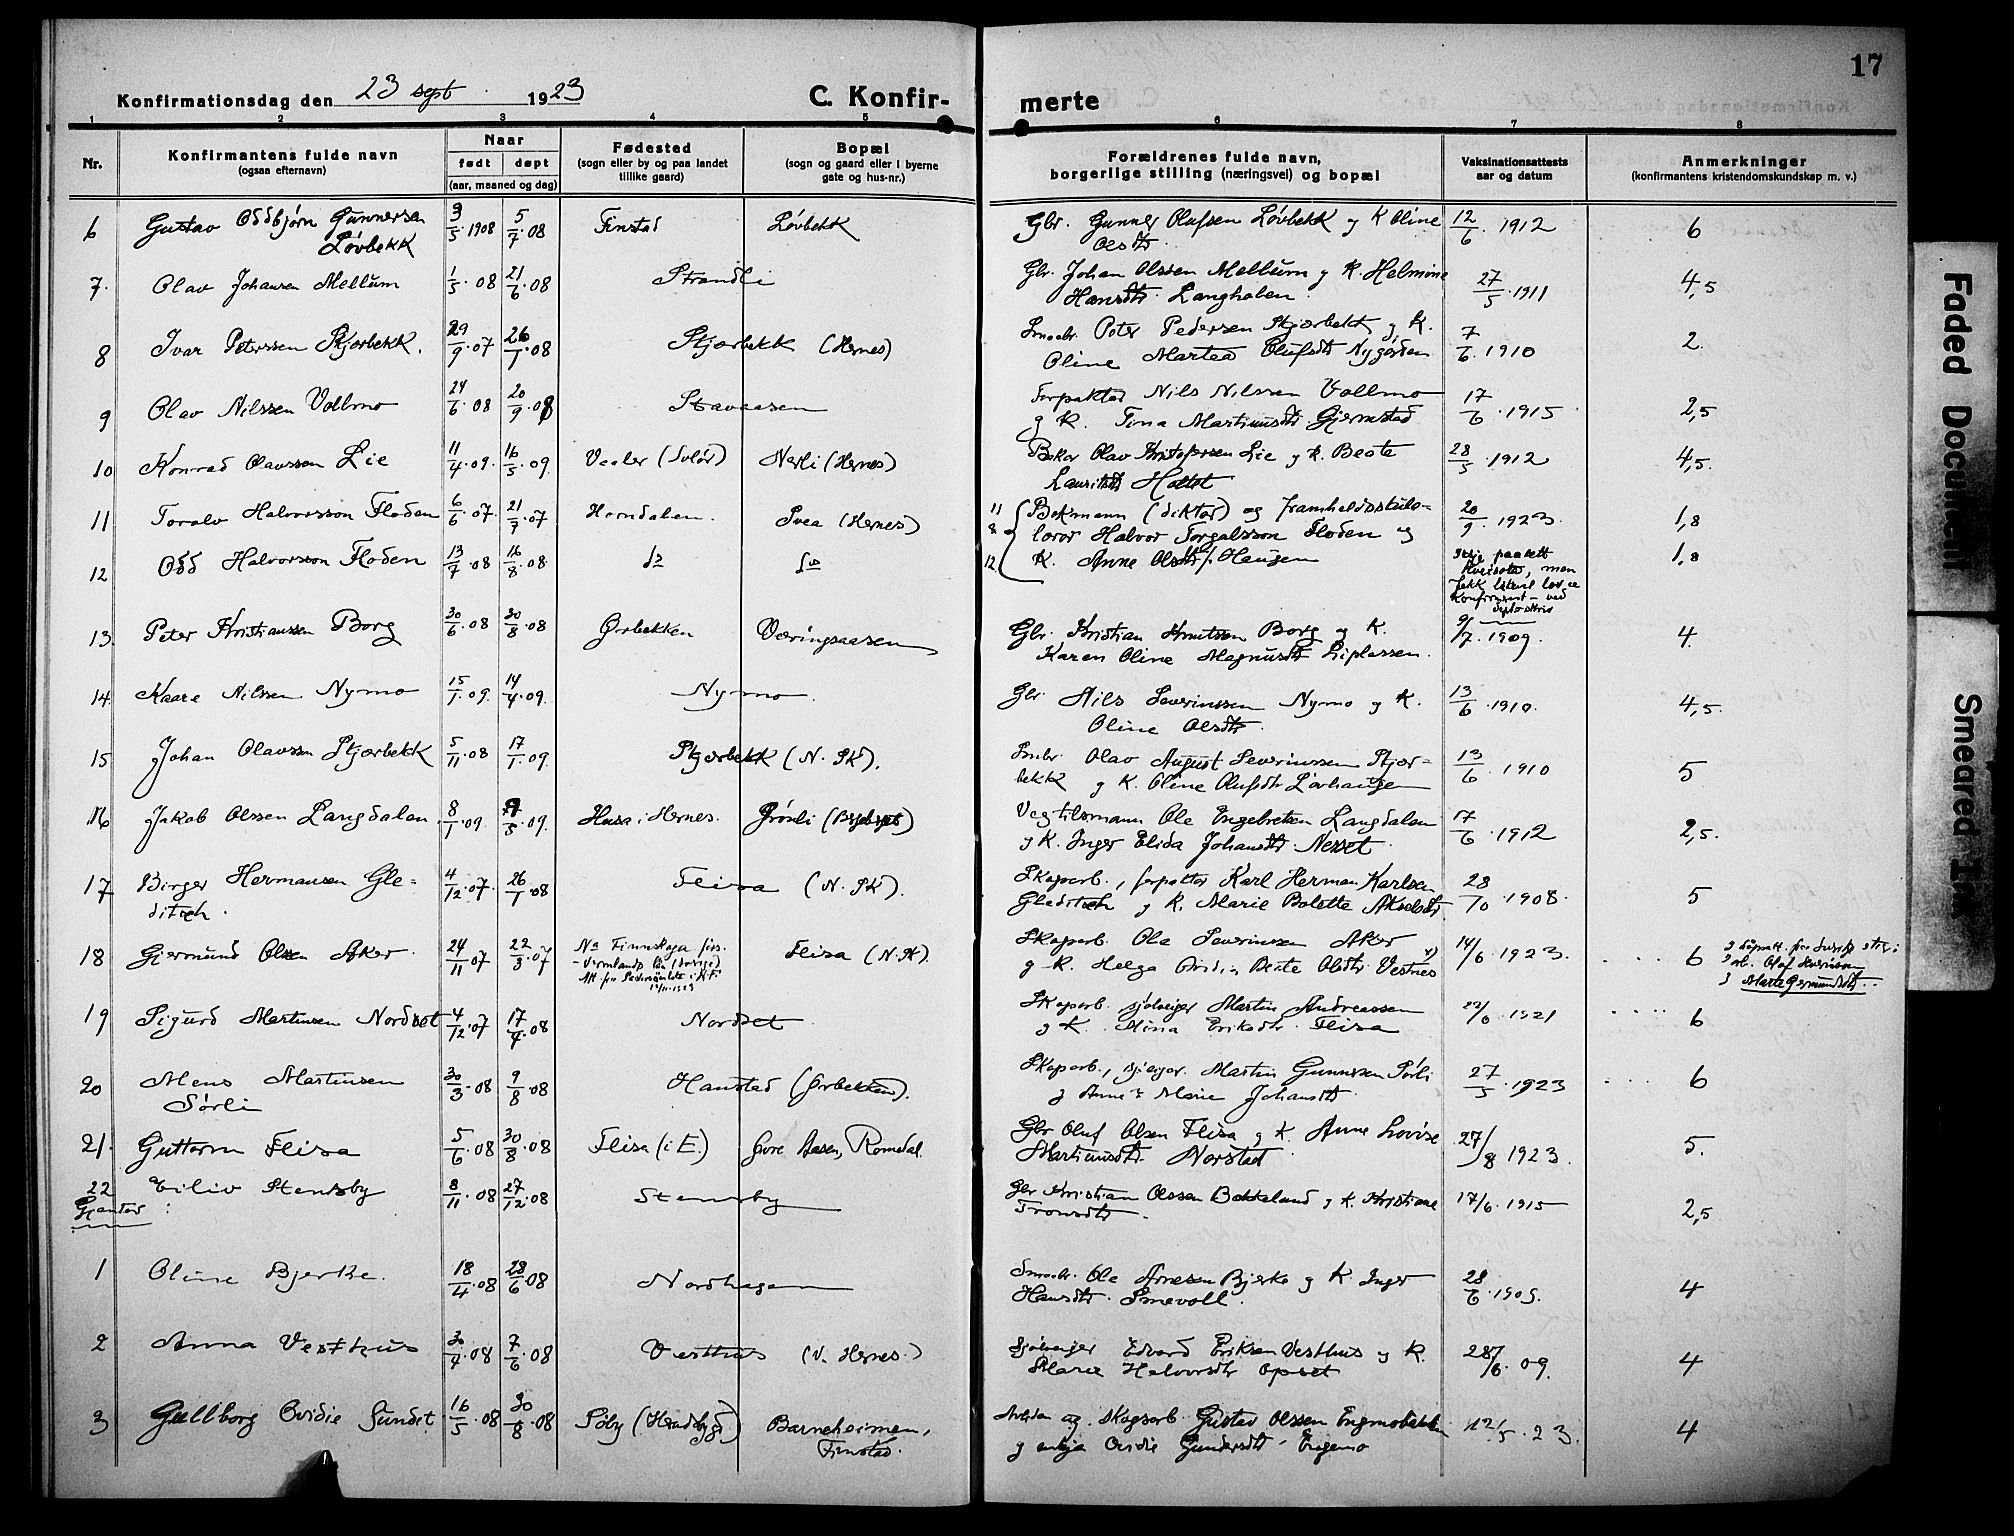 17
Konfirmationsdag den 23 sept 1923
C. Konfirmerte
1 2 3 4 5 6 7 8
Nr.
Konfirmantens fulde navn
(ogsaa efternavn)
Naar
født døpt
(aar, maaned og dag)
Fødested
(sogn eller by og paa landet
tillike gaard)
Bopæl
(sogn og gaard eller i byerne
gate og hus-nr.)
Forældrenes fulde navn,
borgerlige stilling (næringsvei) og bopæl
Vaksinationsattests
aar og datum
Anmerkninger
(konfirmantens kristendomskundskap m. v.)
6 Gustav Oddbjørn Gunnersen 3/5 1908 5/7 08 Finstad Løvbekk Gbr. Gunner Olufsen Løvbekk y K Oline 12/6 1912 6
Løvbekk Olsdtr
7. Olav Johansen Mellum 1/5 08 21/6 08 Strandli Gbr. Johan Olssen Mellum y K. Helmine 27/5 1911 4,5
Hansdtr. Langholen
8 Ivar Peterssen Skjærbekk. 29/9 07 26/1 08 Skjærbekk (Hernes) Smaabr. Peter Pedersen Skjærbekk y K. 7/6 1910 2.
Oline Martea Olufsdtr Nygarden
9 Olav Nilssen Vollmo 24/6 08 20/9 08 Stavaasen Forpakter Nils Nilssen Vollmo 17/6 1915 2,5
y K. Tina Martinusdtr Gjermstad
10 Konrad Olavssen Lie 11/4 09. 16/5 09. Vaaler (Solør) Nerli (Hernes) Baker Olav Kristofersen Lie y K. Beate 28/5 1912 4,5.
Lauritsdtr Holtet
11 Toralv Halvorsson Floden 6/6 07. 21/7 07 Horndalen. Svea (Hernes) Bokmann (diktar) og framhaldsskule- 20/9 1923. 1,8
lærar Halvor Torgalsson Floden og
12 Odd Halvorsson Floden 13/7 08 16/8 08. do do K. Anne Olsdtr f. Haugen 1,8
13. Peter Kristianssen Borg 30/6 08 30/8 08 Ørbekken Væringsaasen Gbr. Kristian Knutssen Borg og K. 9/7. 1909. 4.
Karen Oline Magnusdtr Liplassen.
14 Kaare Nilssen Nymo 15/1 09. 14/4 09. Nymo Gbr. Nils Severinssen Nymo y K. 13/6 1910. 4,5.
Oline Olsdtr.
15 Johan Olavssen Skjærbekk 5/11 08 17/1 09. Skjærbekk (N. Sk). Smbr. Olav August Severinssen Skjær- 13/6 1910 5
bekk y K. Oline Olufsdtr Lørhaugen
16 Jakob Olssen Langdalen 8/1 09. 5 09. Husa i Hernes. Grønli Vegtilsmann Ole Engebretsen Langdalen 17/6 1912 2,5.
y K. Inger Elida Johansdtr Nesset.
17 Birger Hermansen Gle- 4/12 07. 26/1 08 Flisa (N. Sk). Skogarb., forpakter Karl Herman Karlsen 28/10 1908. 5
ditsch. Gleditsch y K. Marie Bolette Akselsdtr
18 Gjermund Olsen Aker 24/11 07 22/3 07 Na Finnskoga fors. Flisa (N. Sk). Skogarb. Ole Severinssen Aker 14/6 1923. 6
y K. Helga Beate Olsdtr Vestnes
Olaf
Marte Germundsdtr
19 Sigurd Martinsen Nordset 4/12 07 17/4 08 Nordset Skogarb. sjølveiger Martin Andreassen 22/6 1921 6
y K. Mina Eriksdtr. Flisa
20 Mens Martinsen 30/3 08 9/8 08 Hanstad (Ørbekken). Skogarb., sjleiger Martin Gunnssen Sørli 27/5 1923 6
Sørli y Anne Marie Johansdtr
21. Guttorm Flisa 5/6 08 30/8 08 Flisa (i E.) Øvre Aasen, Romedal. Gbr Oluf Olsen Flisa y K. Anne Lovise 27/8 1923. 5.
Martinusdtr. Norstad
22 Eiliv Stensby 8/11 08 27/12 08 Stensby Gbr Kristian Olssen Bakkeland y K. Kristiane 17/6 1915 2,5
Gjenter Tronsdtr.
1 Oline Bjerke. 18/4 08 28/6 08 Nordhagen Smaabr. Ole Arnesen Bjerke y K. Inger 28/6 1909. 4
Hansdtr. Smevoll.
2 Anna Vesthus 30/4 08 7/6 08 Vesthus (V. Hernes.) Sjølveiger Edvard Eriksen Vesthus y K. 28/6 09. 4
Marie Halvorsdtr Opset
3 Gullborg Ovidie Sundet 16/5 08 30/8 08 Søby (Heradsbygd) Barneheimen, Arbidar og skogsarb. Gustav Olssen Engmobakken 12/5. 23. 4
Finstad. y enkja Ovidie Gundersdtr Engemo
Faded Document
Smeared Ink